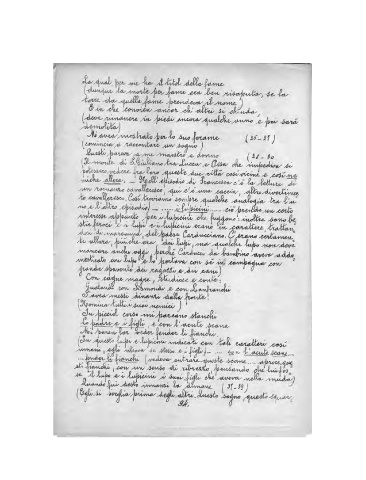 La qual per me ha il titol della fame
(dunque la morte per fame era ben risaputa, se la
torre da quella fame prendeva il nome)
E in che convien ancor ch'altri si chiuda,
(deve rimanere in piedi ancora qualche anno e poi sarà
demolita)
M'avea mostrato per lo suo forame (25-27)
(comincia a raccontare un sogno)
Questi pareva a me maestro e donno (28-30)
Il monte di S. Giuliano tra Lucca e Pisa che impedisce si
potessero vedere fra loro queste due città così vicine e così
un romanzo cavalleresco, che c'è una caccia, altro divertimen
to cavalleresco. Così troviamo sempre qualche analogia tra l'u
no e l'altro episodio) lupicini ciò prende un certo
interesse appunto pei lupicini che fuggono; inoltre sono be
stie feroci e i lupi e i lupicini erano in carattere trattan
dosi
in allora, più che ora dei lupi, ma qualche lupo non deve
mancare anche oggi perchè Carducci da bambino aveva addo
mesticato un lupo e lo portava con sè in campagna con
grande spavento dei ragazzi e dei cani)
Con cagne magre, studiose e conte;
Gualandi con Sismondi e con Lanfranchi
S'avea messi dinanzi dalla fronte!
(Nomina tutti i suoi nemici)
In picciol corso mi pareano stanchi
Lo padre e i figli, e con l'acute scane
Mi parea lor veder fender li fianchi
(In questo lupo e lupicini indicati con tali caratteri così
umani, egli intende se stesso e i figli) l'acute scane
fender li fianchi (vedeva entrare quelle scane aprire que
sti fianchi, con un senso di ribrezzo pensando che lui fos
se il lupo e i lupicini i suoi figli che aveva nella muda)
Quando fui desto innanzi la dimane (37-39)
(Egli si sveglia prima degli altri. Questo sogno, questo
34.